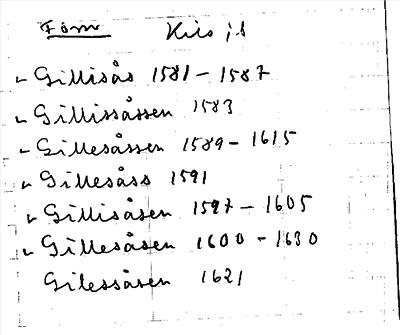 Form
Gillisås 1581 - 1587
Gillissåssen 1583
Gillesåssen 1589 - 1615
Gillesåss 1591
Gillisåsen 1597 - 1605
Gillesåsen 1600 - 1630
Gilessåsen 1621